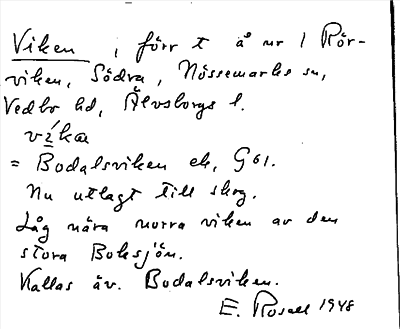 Viken, förr t å nr 1 Rör-
viken, Södra, Nössemarks sn,
Vedbo hd, Älvsborgs l.
víka
= Bodalsviken ek, G61.
Nu utlagt till skog.
Låg nära norra viken av den
stora Boksjön.
Kallas äv. Bodalsviken.
E. Rosell 1948